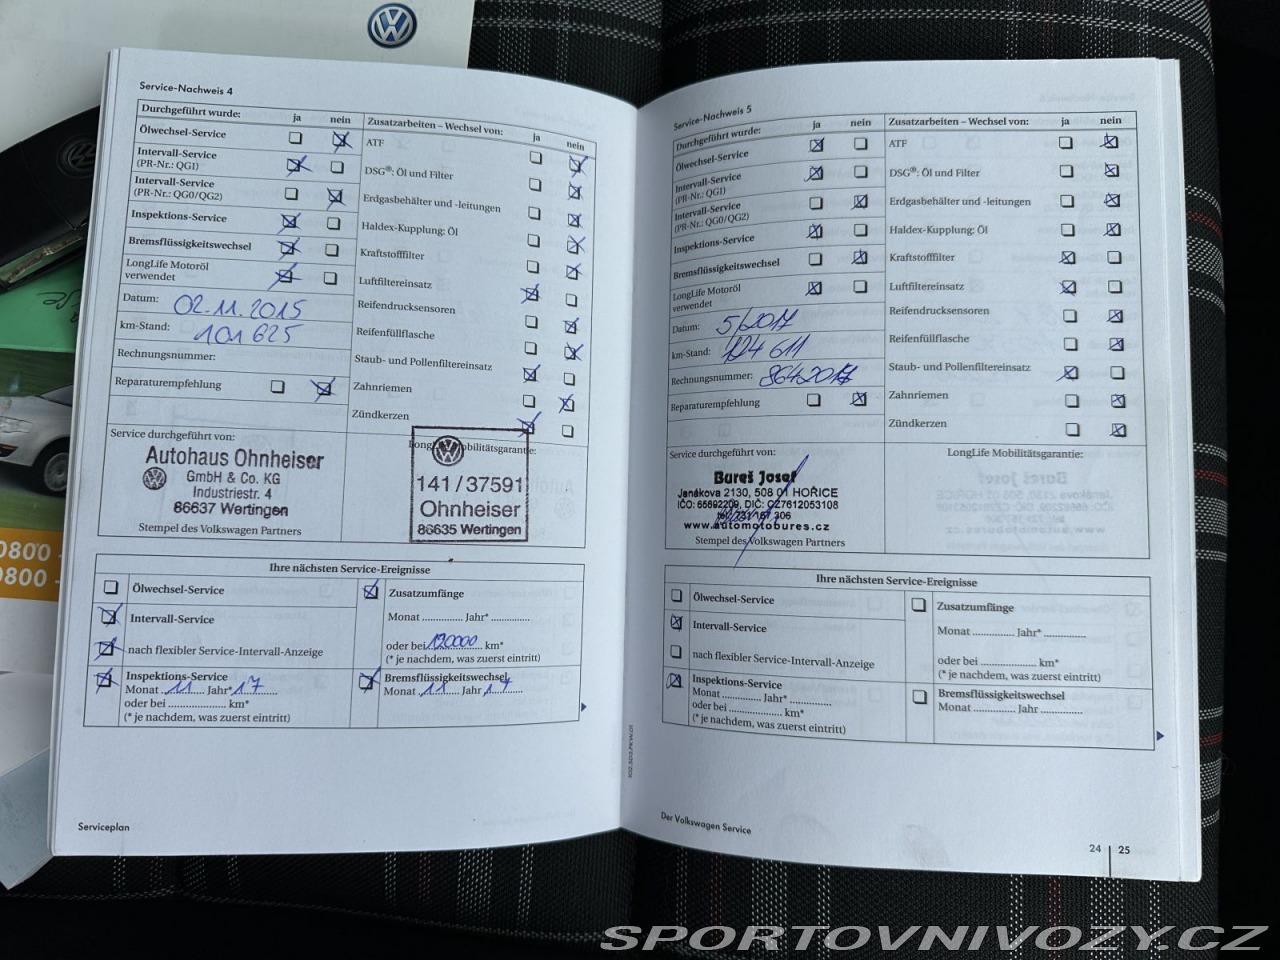 Service-Nachweis 4
Durchgeführt wurde: ja nein
Ölwechsel-Service
Intervall-Service
(PR-Nr.: QG1)
Intervall-Service
(PR-Nr.: QG0/QG2)
Inspektions-Service
Bremsflüssigkeitswechsel
LongLife Motoröl
verwendet
Datum: 02.11.2015
km-Stand: 101 625
Rechnungsnummer:
Reparaturempfehlung
Zusatzarbeiten – Wechsel von: ja nein
ATF
DSG®: Öl und Filter
Erdgasbehälter und -leitungen
Haldex-Kupplung: Öl
Kraftstofffilter
Luftfiltereinsatz
Reifendrucksensoren
Reifenfüllflasche
Staub- und Pollenfiltereinsatz
Zahnriemen
Zündkerzen
Service durchgeführt von:
Autohaus Ohnheiser
GmbH & Co. KG
Industriestr. 4
86637 Wertingen
Stempel des Volkswagen Partners
LongLife Mobilitätsgarantie:
141 / 37591
Ohnheiser
86635 Wertingen
Ihre nächsten Service-Ereignisse
Ölwechsel-Service
Intervall-Service
nach flexibler Service-Intervall-Anzeige
Inspektions-Service
Monat 11 Jahr* 17
oder bei .................... km*
(* je nachdem, was zuerst eintritt)
Zusatzumfänge
Monat .............. Jahr* .............
oder bei 120000 km*
(* je nachdem, was zuerst eintritt)
Bremsflüssigkeitswechsel
Monat 11 Jahr 17
Serviceplan
Service-Nachweis 5
Durchgeführt wurde: ja nein
Ölwechsel-Service
Intervall-Service
(PR-Nr.: QG1)
Intervall-Service
(PR-Nr.: QG0/QG2)
Inspektions-Service
Bremsflüssigkeitswechsel
LongLife Motoröl
verwendet
Datum: 5/2017
km-Stand: 124 611
Rechnungsnummer: 8642017
Reparaturempfehlung
Zusatzarbeiten – Wechsel von: ja nein
ATF
DSG®: Öl und Filter
Erdgasbehälter und -leitungen
Haldex-Kupplung: Öl
Kraftstofffilter
Luftfiltereinsatz
Reifendrucksensoren
Reifenfüllflasche
Staub- und Pollenfiltereinsatz
Zahnriemen
Zündkerzen
Service durchgeführt von:
Bureš Josef
Janákova 2130, 508 01 HOŘICE
IČO: 65692209, DIČ: CZ7612053108
www.automotobures.cz
Stempel des Volkswagen Partners
LongLife Mobilitätsgarantie:
Ihre nächsten Service-Ereignisse
Ölwechsel-Service
Intervall-Service
nach flexibler Service-Intervall-Anzeige
Inspektions-Service
Monat .............. Jahr* .............
oder bei .................... km*
(* je nachdem, was zuerst eintritt)
Zusatzumfänge
Monat .............. Jahr* .............
oder bei .................... km*
(* je nachdem, was zuerst eintritt)
Bremsflüssigkeitswechsel
Monat .............. Jahr ..............
Der Volkswagen Service
24 | 25
0800
0800
SPORTOVNIVOZY.CZ